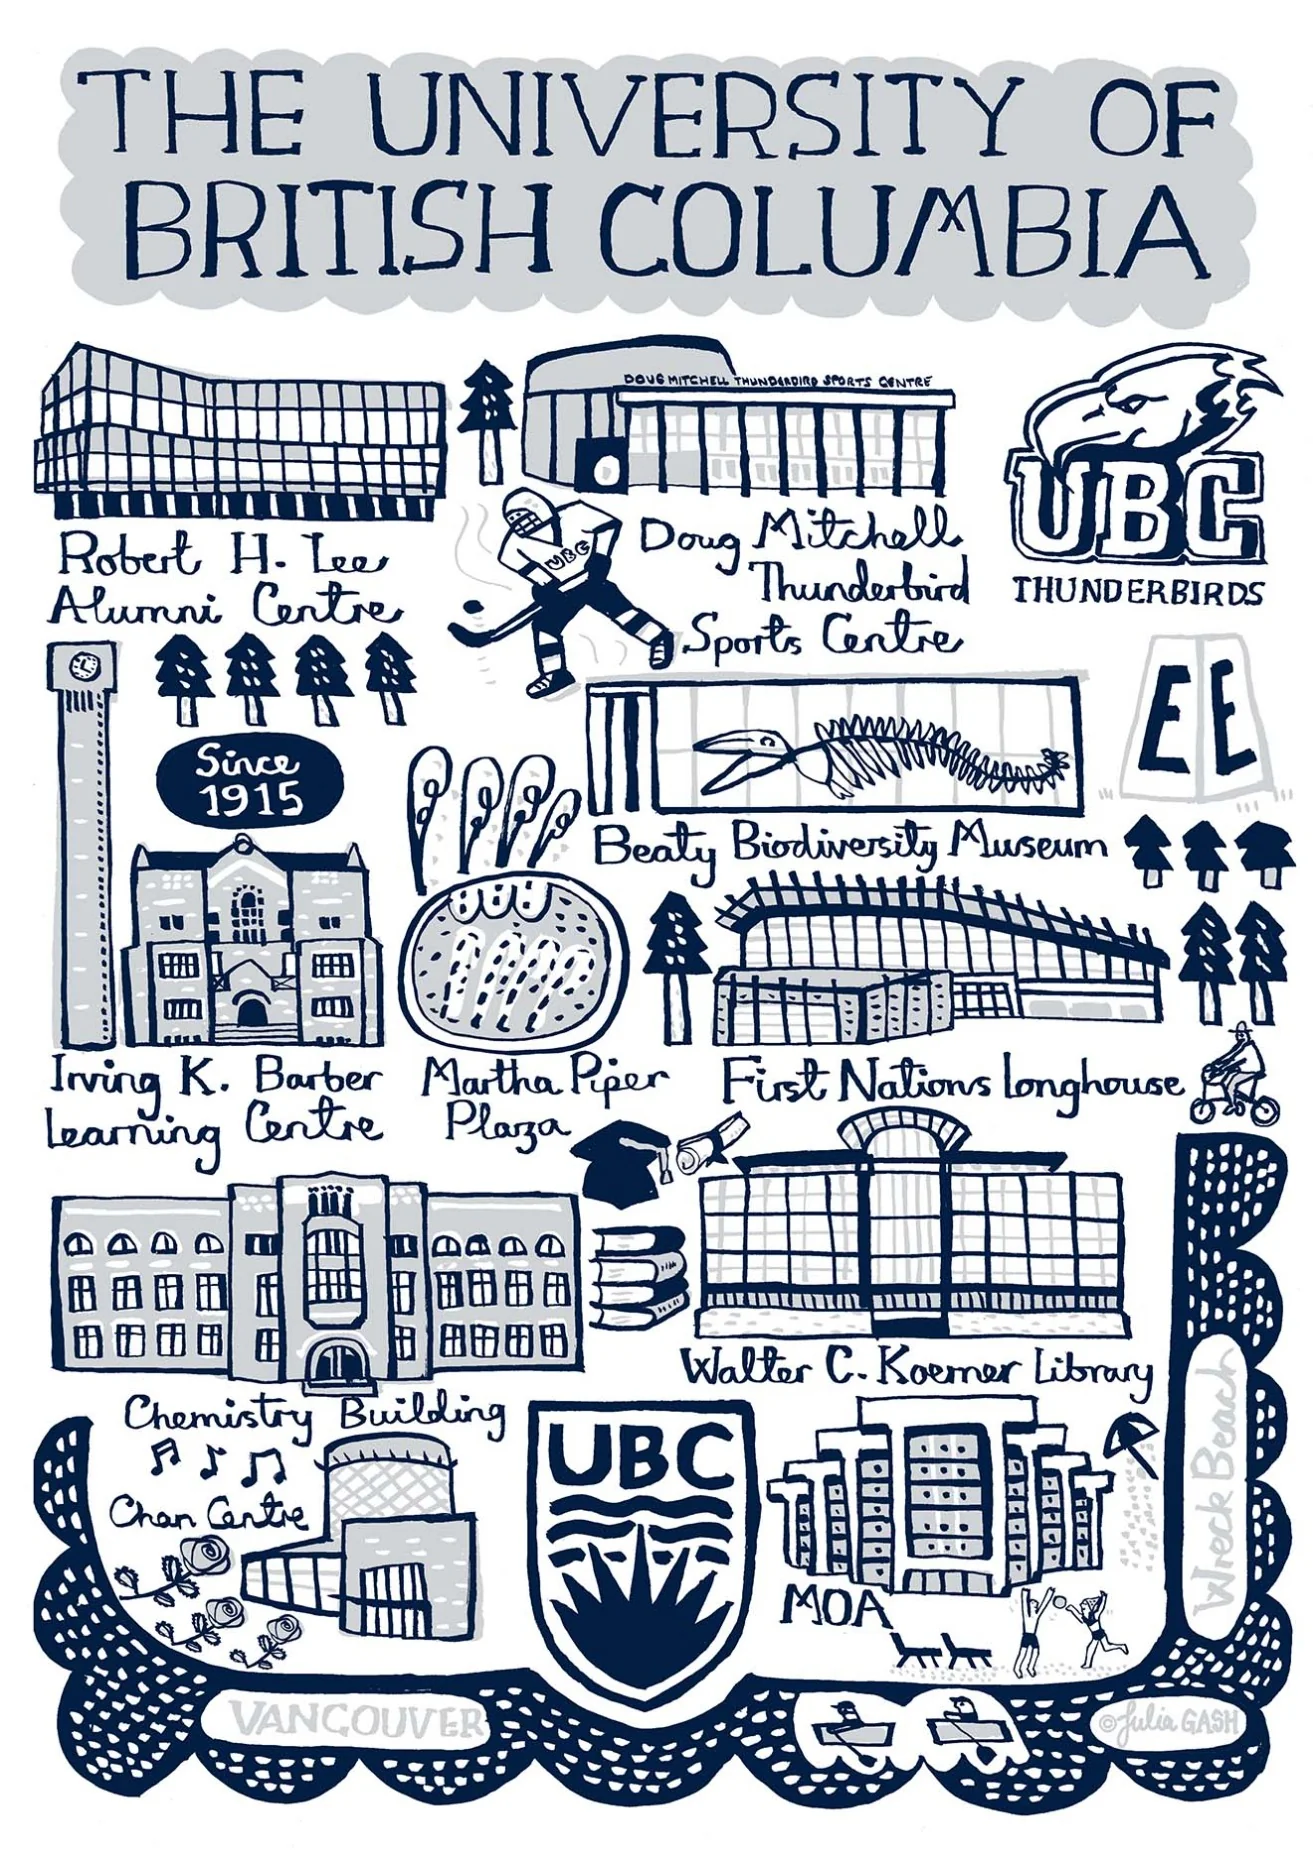 THE UNIVERSITY OF
BRITISH COLUMBIA
DOUG MITCHELL THUNDERBIRD SPORTS CENTRE
Robert H. Lee
Alumni Centre
UBC
Doug Mitchell
Thunderbird
Sports Centre
UBC
THUNDERBIRDS
Since
1915
EE
Beaty Biodiversity Museum
Irving K. Barber
Learning Centre
Martha Piper
Plaza
First Nations Longhouse
Walter C. Koerner Library
Chemistry Building
Chan Centre
UBC
MOA
Wreck Beach
VANCOUVER
© Julia GASH